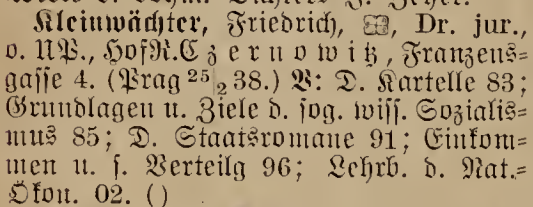 Kleinwächter, Friedrich, Dr. jur.,
o. UP., HofR. Czernowitz, Franzens-
gasse 4. (Prag 25/2 38.) V: D. Kartelle 83;
Grundlagen u. Ziele d. sog. wiss. Sozialis-
mus 85; D. Staatsromane 91; Einkom-
men u. s. Verteilg 96; Lehrb. d. Nat.-
Ökon. 02. ()